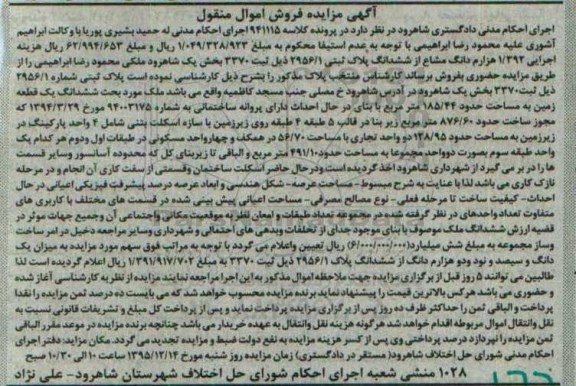 آگهی مزایده فروش اموال منقول
اجرای احکام مدنی دادگستری شاهرود در نظر دارد در پرونده کلاسه ۹۴۱۱۱۵ اجرای احکام مدنی له حمید بشیری پوریا با وکالت ابراهیم
آشوری علیه محمود رضا ابراهیمی با توجه به عدم استیفا محکوم به مبلغ ۱/۰۴۹/۳۲۸/۹۲۳ ریال و مبلغ ۶۲/۹۹۴/۶۵۳ ریال هزینه
اجرایی ۱/۳۹۲ هزارم دانگ مشاع از ششدانگ پلاک ثبتی ۲۹۵۶/۱ ذیل ثبت ۳۳۷۰ بخش یک شاهرود ملکی محمود رضا ابراهیمی را از
طریق مزایده حضوری بفروش برساند کارشناس منتخب پلاک مذکور را بشرح ذیل کارشناسی نموده است پلاک ثبتی شماره ۲۹۵۶/۱
ذیل ثبت ۳۳۷۰ بخش یک شاهرود در آدرس شاهرود خ مصلی جنب مسجد کاظمیه واقع می باشد ملک مورد بحث ششدانگ یک قطعه
زمین به مساحت حدود ۱۸۵/۴۴ متر مربع با بنای در حال احداث دارای پروانه ساختمانی به شماره ۹۴۰۰۳۱۷۵ مورخ ۱۳۹۴/۳/۲۹ که
مجوز ساخت حدود ۸۷۶/۶۰ متر مربع زیر بنا در قالب ۵ طبقه ۴ طبقه روی زیرزمین با سازه اسکلت بتنی شامل ۴ واحد پارکینگ در
زیرزمین به مساحت حدود ۱۳۸/۹۵ دو واحد تجاری با مساحت ۵۶/۷۰ در همکف و چهارواحد مسکونی در طبقات اول و دوم هر کدام یک
واحد طبقه سوم بصورت دوواحد مجموعا به مساحت حدود ۴۹۱/۱۰ متر مربع و الباقی تا زیربنای کل که محدوده آسانسور وسایر قسمت
ها را در بر می گیرد از شهرداری شاهرود اخذ گردیده است ودرحال حاضر اسکلت ساختمان وقسمتی از سفت کاری آن انجام و در مرحله
نازک کاری می باشد لذا با عنایت به شرح مبسوط - مساحت عرصه - شکل هندسی و ابعاد عرصه درصد پیشرفت فیزیکی اعیانی در حال
احداث - کیفیت ساخت تا مرحله فعلی - نوع مصالح مصرفی - مساحت اعیانی پیش بینی شده در قسمت های مختلف با کاربری های
متفاوت تعداد واحدهای در نظر گرفته شده در مجموعه تعداد طبقات و امعان نظر به موقعیت مکانی واجتماعی آن وجمیع جهات موثر در
قضیه ارزش ششدانگ ملک موصوف با بنای موجود جدای از تخلفات وبدهی های احتمالی و شهرداری وسایر مراجعه دخیل در امر ساخت
وساز مجموعه به مبلغ شش میلیارد(۶/۰۰۰/۰۰۰/۰۰۰) ریال تعیین واعلام می گردد با توجه به مراتب فوق سهم مورد مزایده به میزان یک
دانگ و سیصد و نود ودو هزارم دانگ از ششدانگ پلاک ۲۹۵۶/۱ ذیل ثبت ۳۳۷۰ به مبلغ ۱/۳۹۱/۹۱۷/۷۰۲ ریال اعلام گردیده است لذا
طالبین می توانند ۵ روز قبل از برگزاری مزایده جهت ملاحظه اموال مذکور به این اجرا مراجعه نمایند مزایده از نظریه کارشناسی آغاز شده
و حضوری می باشد هر کس بالاترین قیمت را پیشنهاد نماید برنده مزایده محسوب خواهد شد که می بایست ده درصد ثمن مزایده را نقدا
پرداخت و الباقی ثمن را حداکثر ظرف ده روز پس از برگزاری مزایده پرداخت نماید و پس از پرداخت کل مبلغ و تشریفات قانونی نسبت به
نقل وانتقال اموال مربوطه اقدام خواهد شد هرگونه هزینه نقل وانتقال به عهده خریدار می باشد چنانچه برنده مزایده در موعد مقرر الباقی
ثمن مزایده را نپردازد درصد پرداختی وی پس از کسر هزینه مزایده به نفع دولت ضبط و مزایده تجدید می گردد. مکان مزایده: دفتر اجرای
احکام مدنی شورای حل اختلاف شاهرود( مستقر در دادگستری) زمان مزایده روز شنبه مورخ ۱۳۹۵/۱۲/۱۴ ساعت ۱۰ الی ۱۰/۳۰ صبح
۱۰۲۸ منشی شعبه اجرای احکام شورای حل اختلاف شهرستان شاهرود - علی نژاد